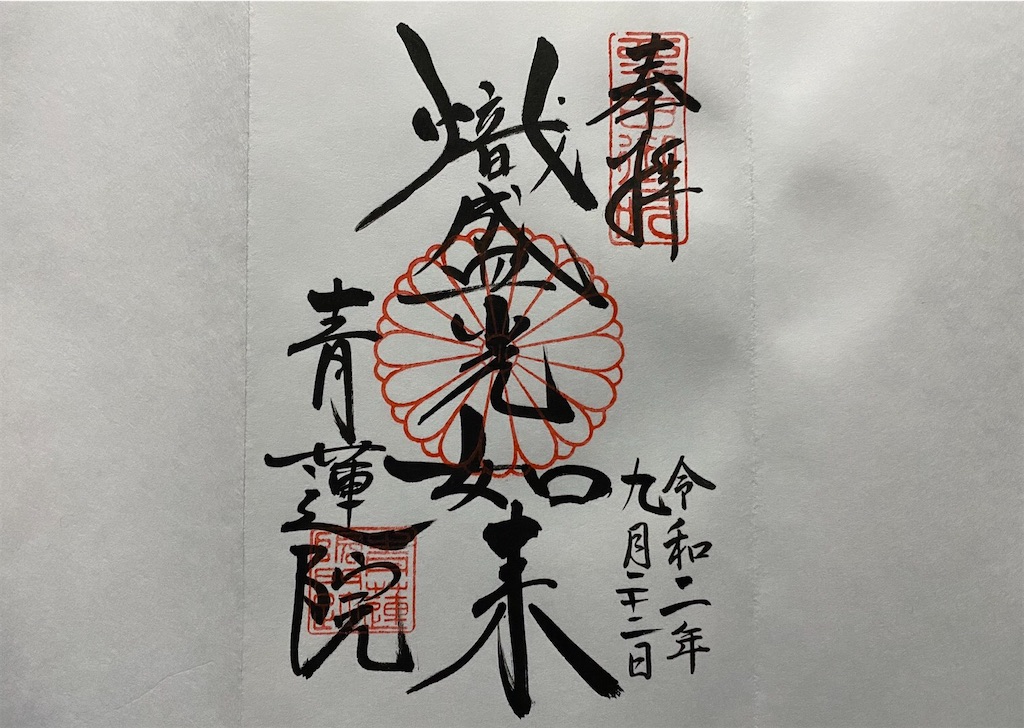 奉拝
令和二年
九月二十二日
熾盛光如来
青蓮院